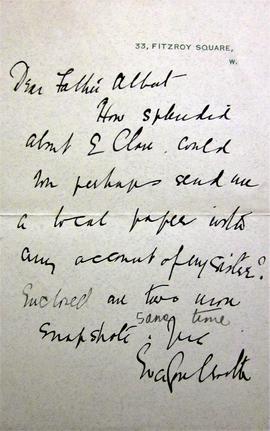 33, FITZROY SQUARE,
W.
Dear Father Albert
How splendid
about E Clare. Could
you perhaps send me
a local paper with
any account of my sister?
Enclosed are two more
same time
snapshots.
Eva Gore Booth